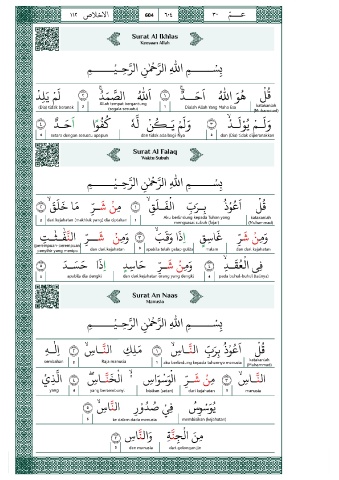 الاخلاص ١١٢ 604 ٦٠٤ عـــم ٣٠
Surat Al Ikhlas
Kemurnian Allah
بِسْــــمِ اللّٰهِ الرَّحْمٰنِ الرَّحِيْــمِ
قُلْ هُوَ اللّٰهُ اَحَــدٌ ۚ ١ اَللّٰهُ الصَّمَدُ ۚ ٢ لَمْ يَلِدْ
katakanlah (Muhammad) Dialah Allah Yang Maha Esa 1 Allah tempat bergantung segala sesuatu 2 (Dia) tidak beranak
وَلَــمْ يُوْلَــدْ ۙ ٣ وَلَمْ يَكُــنْ لَّهٗ كُفُوًا اَحَدٌ ٤
dan (Dia) tidak diperanakkan 3 dan tidak ada bagi-Nya setara dengan sesuatu apapun 4
Surat Al Falaq
Waktu Subuh
بِسْــــمِ اللّٰهِ الرَّحْمٰنِ الرَّحِيْــمِ
قُلْ اَعُوْذُ بِــرَبِّ الْفَــلَقِ ۙ ١ مِنْ شَــرِّ مَا خَلَقَ ۙ ٢
katakanlah (Muhammad) Aku berlindung kepada Tuhan yang menguasai subuh (fajar) 1 dari kejahatan (makhluk yang) dia ciptakan 2
وَمِنْ شَــرِّ غَاسِقٍ اِذَا وَقَبَ ۙ ٣ وَمِنْ شَــرِّ النَّفّٰثٰتِ
dan dari kejahatan malam apabila telah gelap gulita 3 dan dari kejahatan
فِى الْعُقَــدِ ۙ ٤ وَمِنْ شَــرِّ حَاسِدٍ اِذَا حَسَــدَ ٥
pada buhul-buhul (talinya) 4 dan dari kejahatan orang yang dengki apabila dia dengki 5
Surat An Naas
Manusia
بِسْــــمِ اللّٰهِ الرَّحْمٰنِ الرَّحِيْــمِ
قُلْ اَعُوْذُ بِرَبِّ النَّــاسِ ۙ ١ مَلِكِ النَّــاسِ ۙ ٢ اِلٰــهِ
katakanlah (Muhammad) aku berlindung kepada tuhannya manusia 1 Raja manusia 2 sembahan
النَّــاسِ ۙ ٣ مِنْ شَــرِّ الْوَسْوَاسِ ۙ الْخَنَّــاسِ ۖ ٤ الَّذِيْ
manusia 3 dari kejahatan bisikan (setan) yang bersembunyi 4 yang
يُوَسْوِسُ فِيْ صُدُوْرِ النَّاسِ ۙ ٥
membisikkan (kejahatan) ke dalam dada manusia 5
مِنَ الْجِنَّةِ وَالنَّاسِ ٦
dari golongan jin dan manusia 6